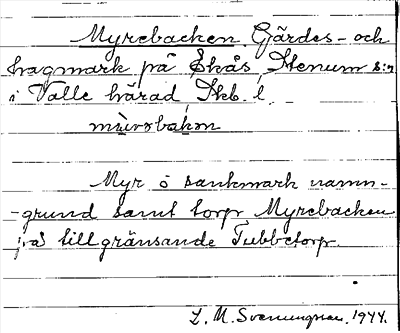 Myrebacken. Gärdes- och
hagmark på Ekås, Stenum s:n
i Valle härad, Skb. l.
Myr o sankmark namn-
-grund samt torp Myrebacken
på tillgränsande Tubbetorp.
L. M. Svenungsson. 1944.